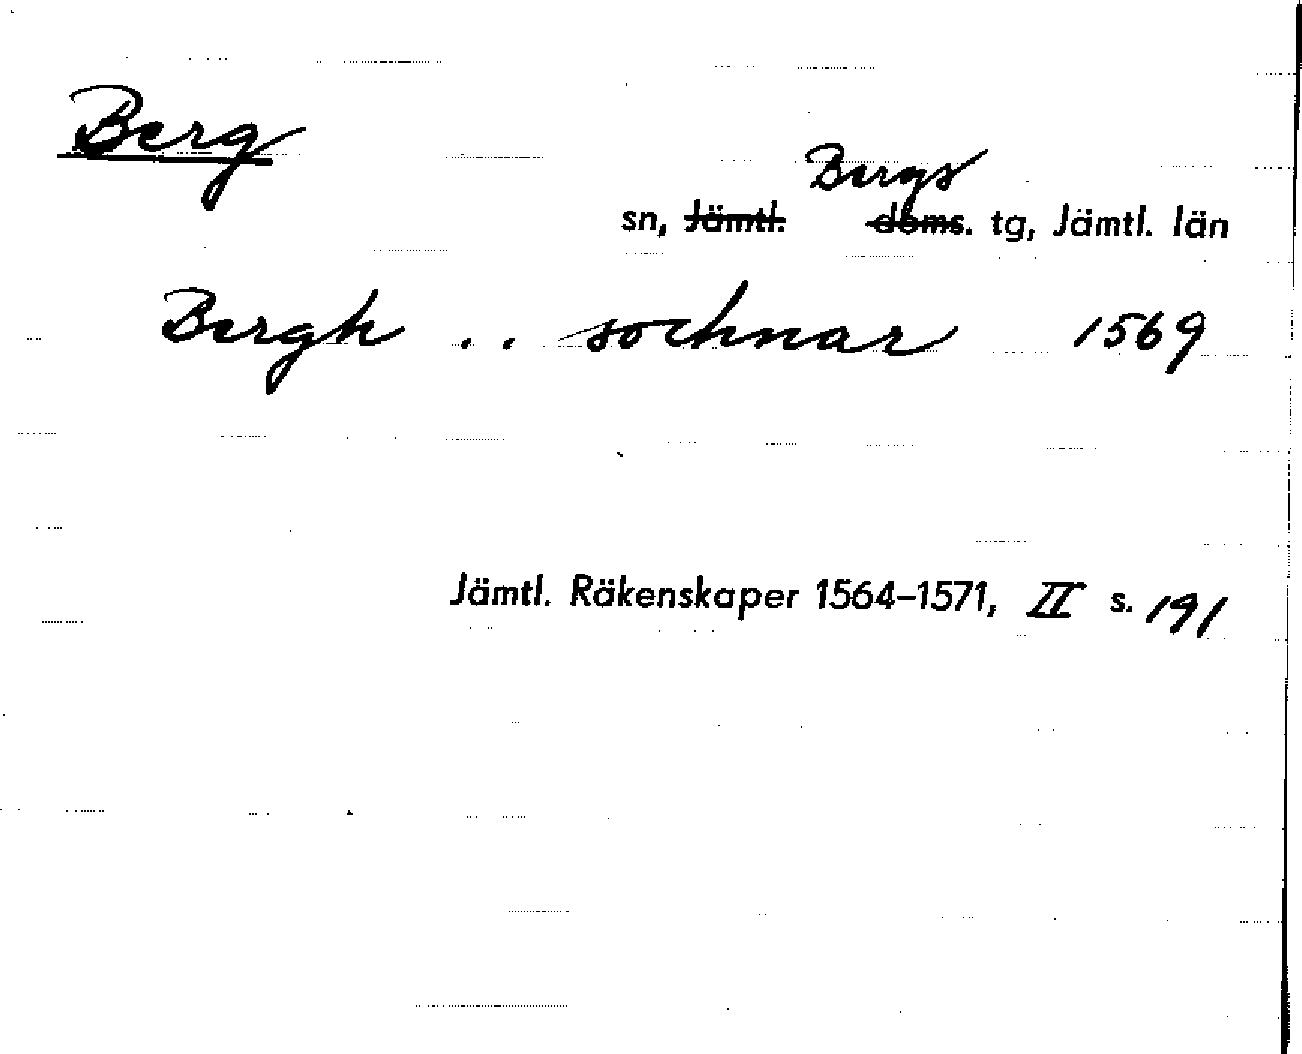 Berg
Bergs
sn, Jämtl. doms. tg, Jämtl. län
Bergh .. sochnar 1569
Jämtl. Räkenskaper 1564–1571, II s. 191